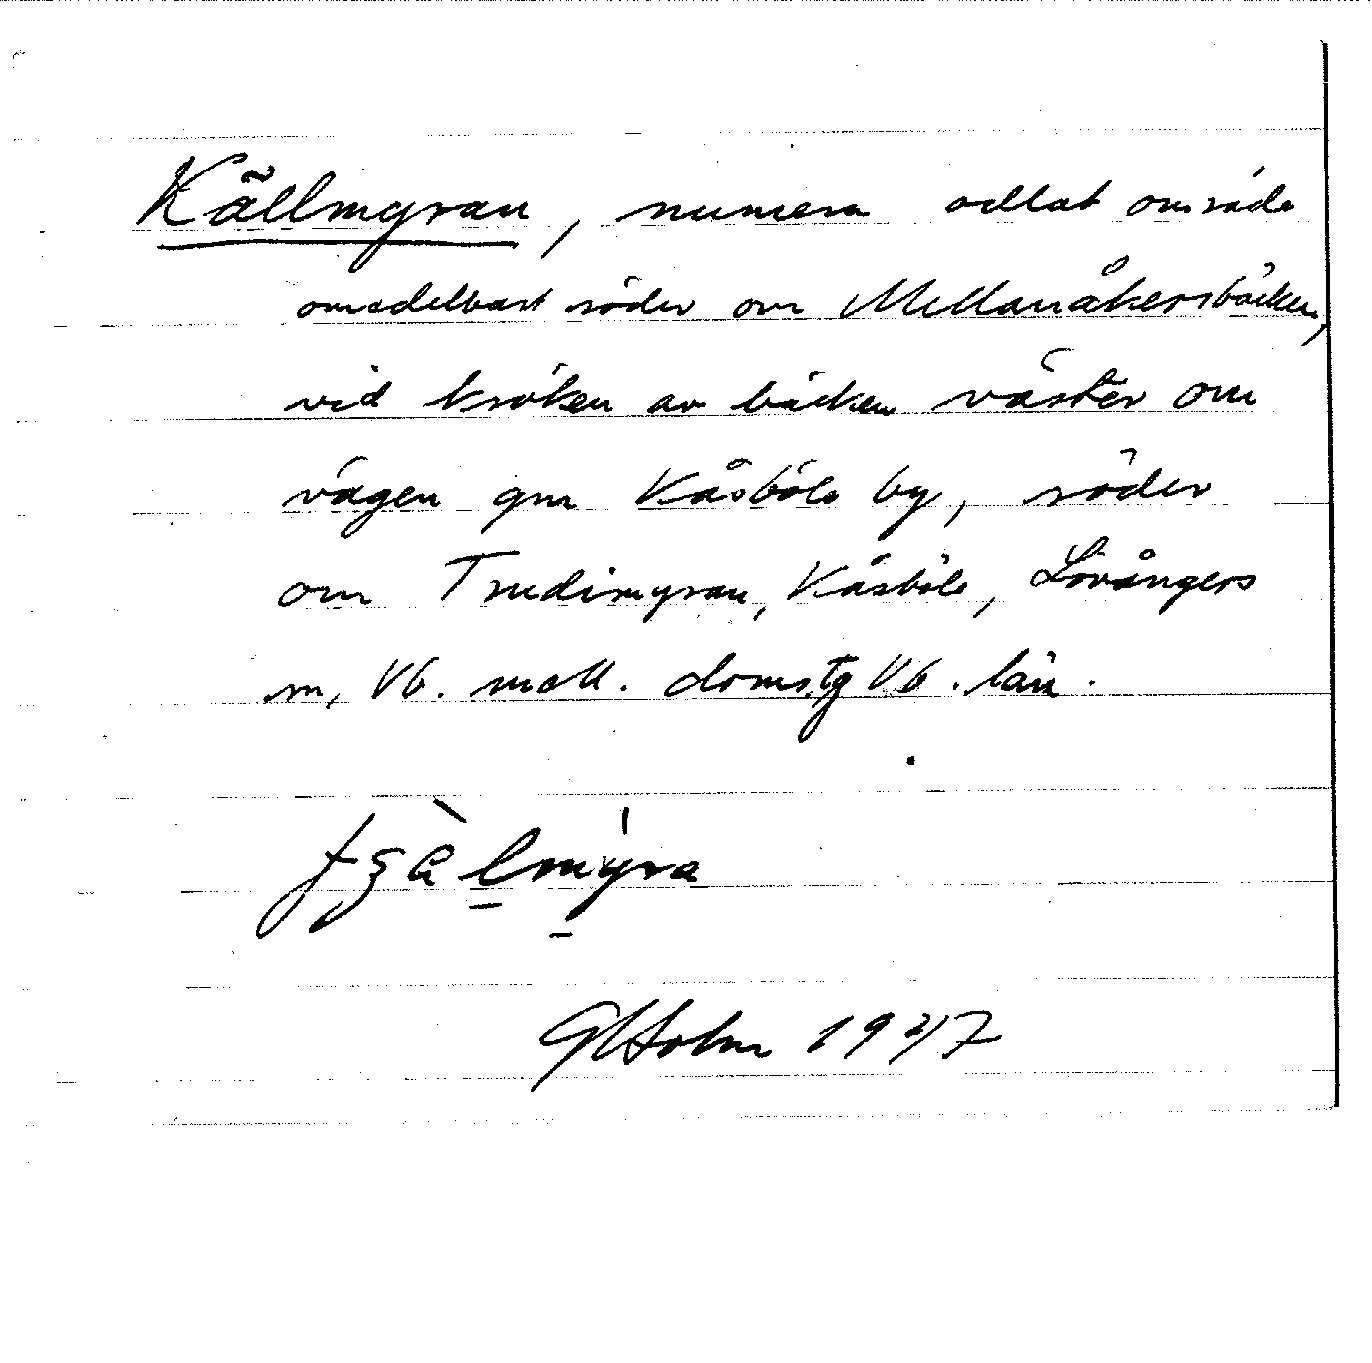 Källmyran, numera odlat område
omedelbart söder om Mellanåkersbäcken,
vid kröken av bäcken väster om
vägen gm Kåsböle by, söder
om Trudimyran, Kåsböle, Lövångers
sn, Vb. mell. doms.tg Vb. län.
GHolm 1947